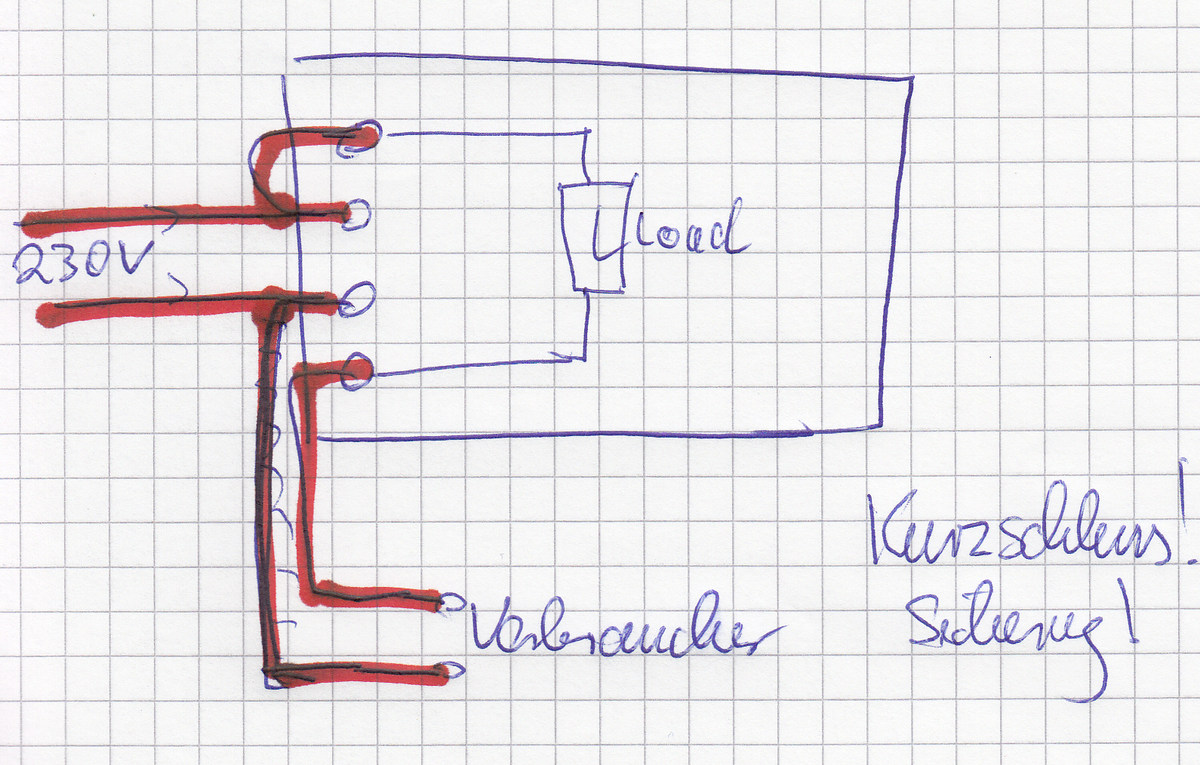 230V
Load
Verbraucher
Kurzschluss!
Sicherung!